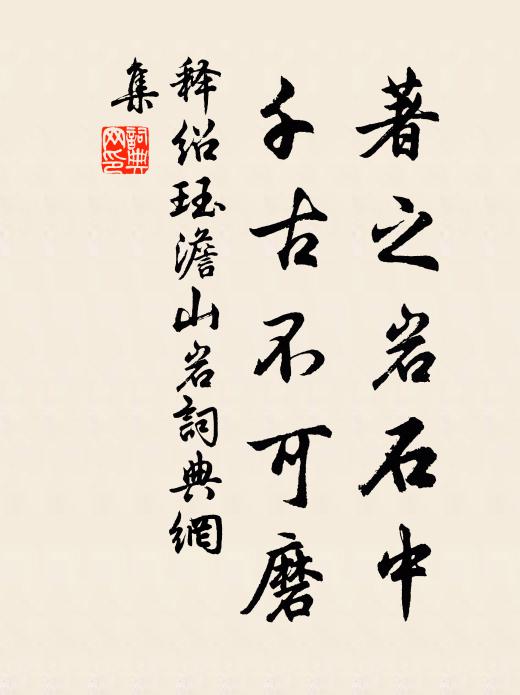 著之岩石中
千古不可磨
释绍珏澹山岩詞典網
集
詞典网印